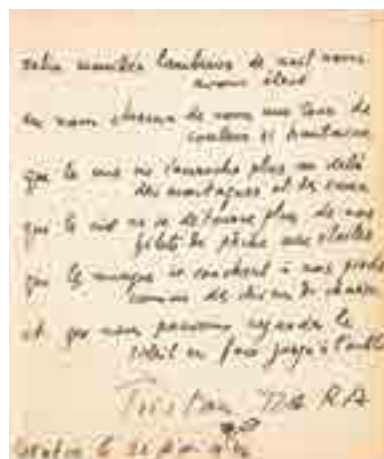 cette montée lumineuse de nuit nous
avons élevé
en nous chacun de nous une tour de
couleur si hautaine
que la vue ne s'accroche plus au delà
des montagnes et des eaux
que le ciel ne se détourne plus de nos
filets de pêche aux étoiles
que les nuages se couchent à nos pieds
comme des chiens de chasse
et que nous pouvons regarder le
soleil en face jusqu'à l'oubli
Tristan TZARA